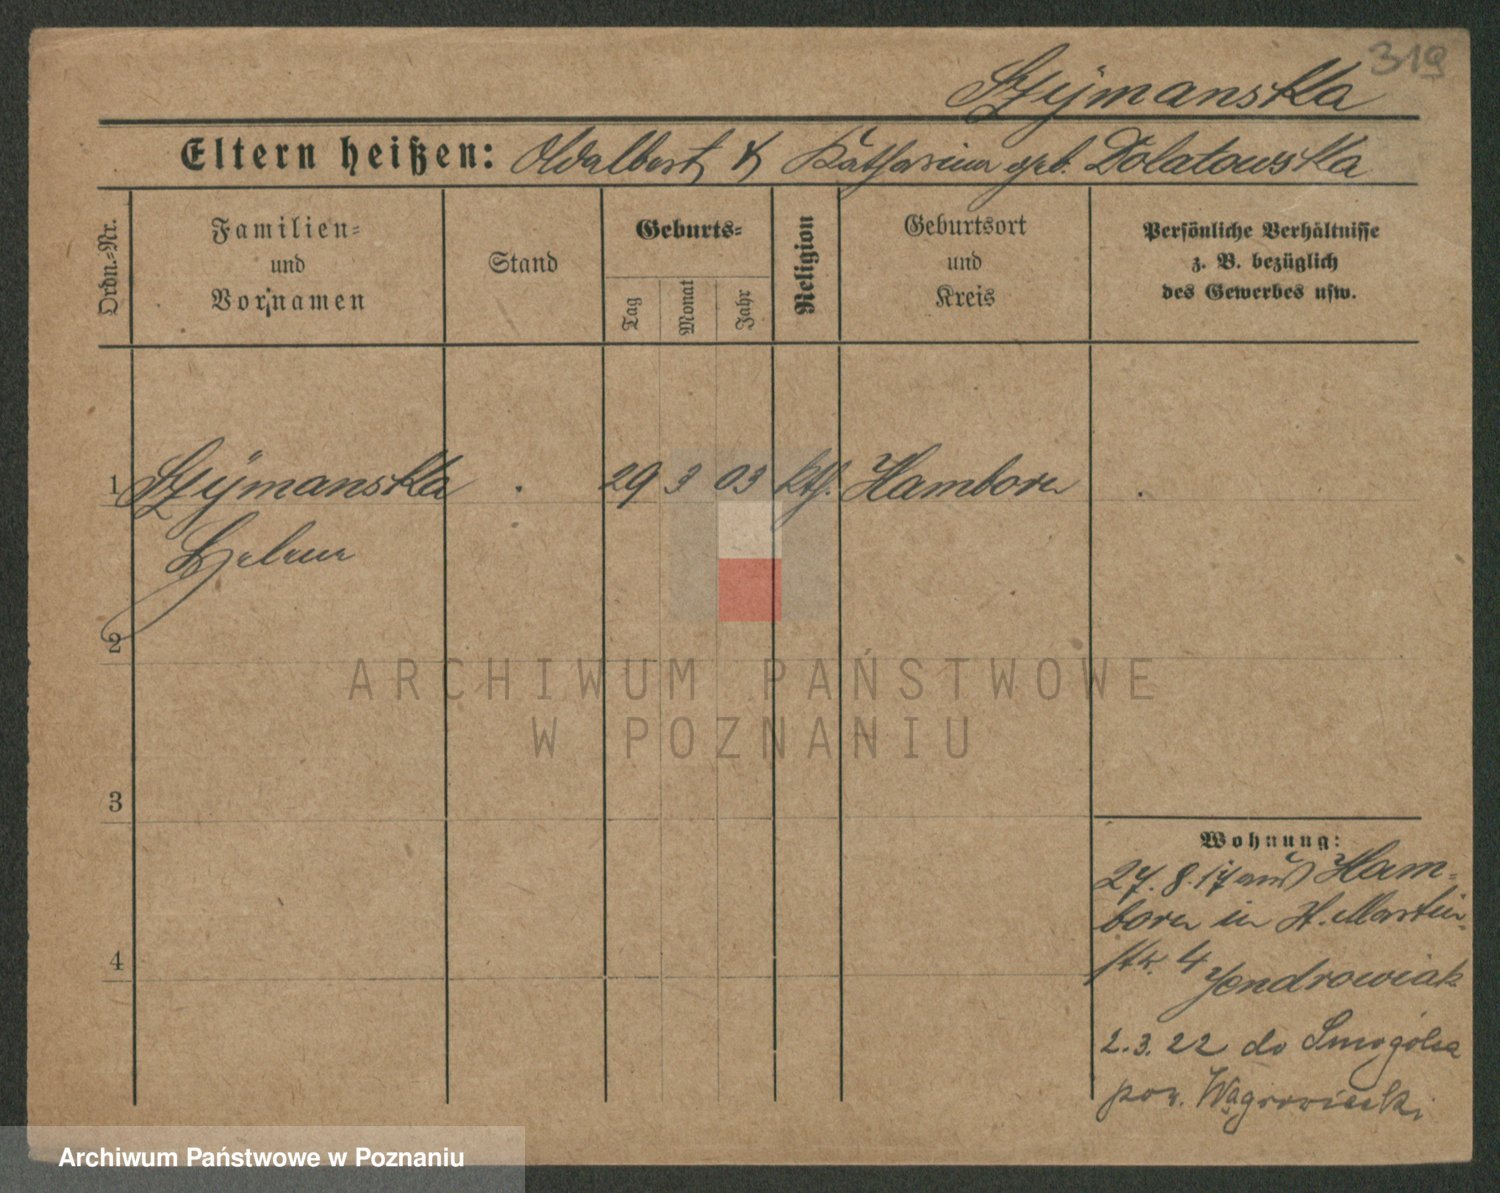 319
Szÿmanska
Eltern heißen: Adalbert & Katharina geb. Dolatowska
Ordn.-Nr.
Familien-
und
Vornamen
Stand
Geburts-
Tag
Monat
Jahr
Religion
Geburtsort
und
Kreis
Persönliche Verhältnisse
z. B. bezüglich
des Gewerbes usw.
1 Szÿmanska 29 3 03 kth. Hamborn
Helene
2
ARCHIWUM PAŃSTWOWE
W POZNANIU
3
Wohnung:
27. 8. 17 aus Ham-
born in St. Martin-
4
str. 4 Jendrowiak
2. 3. 22 do
pow. Wągrowiecki
Archiwum Państwowe w Poznaniu